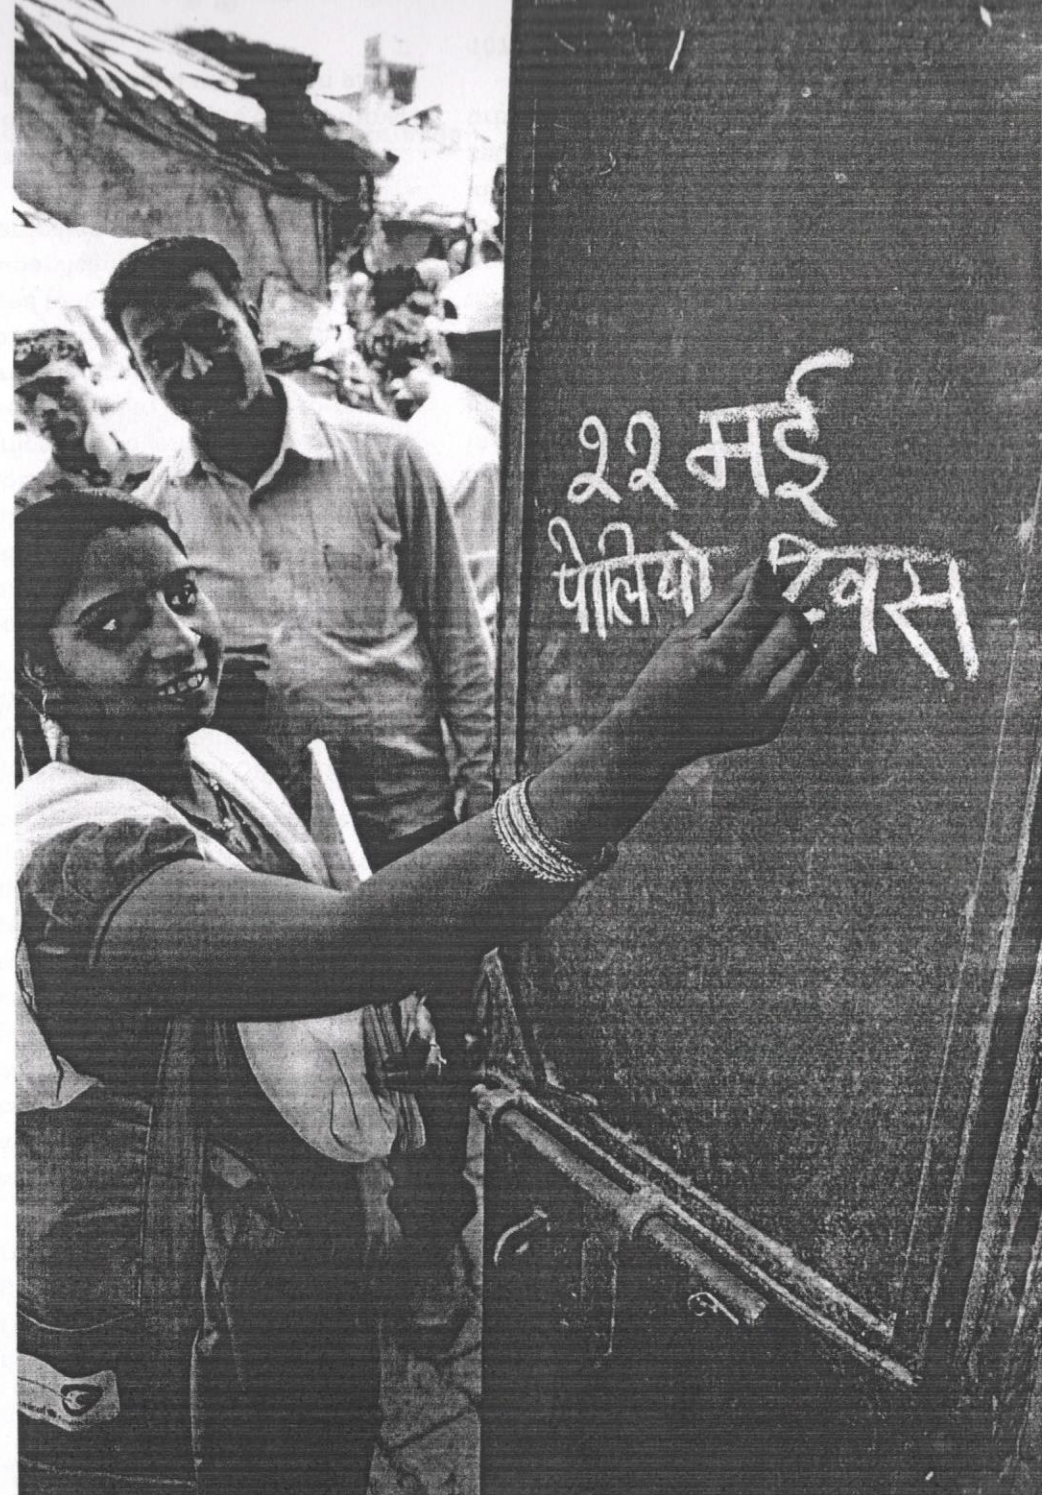 २२ मई
पोलियो दिवस